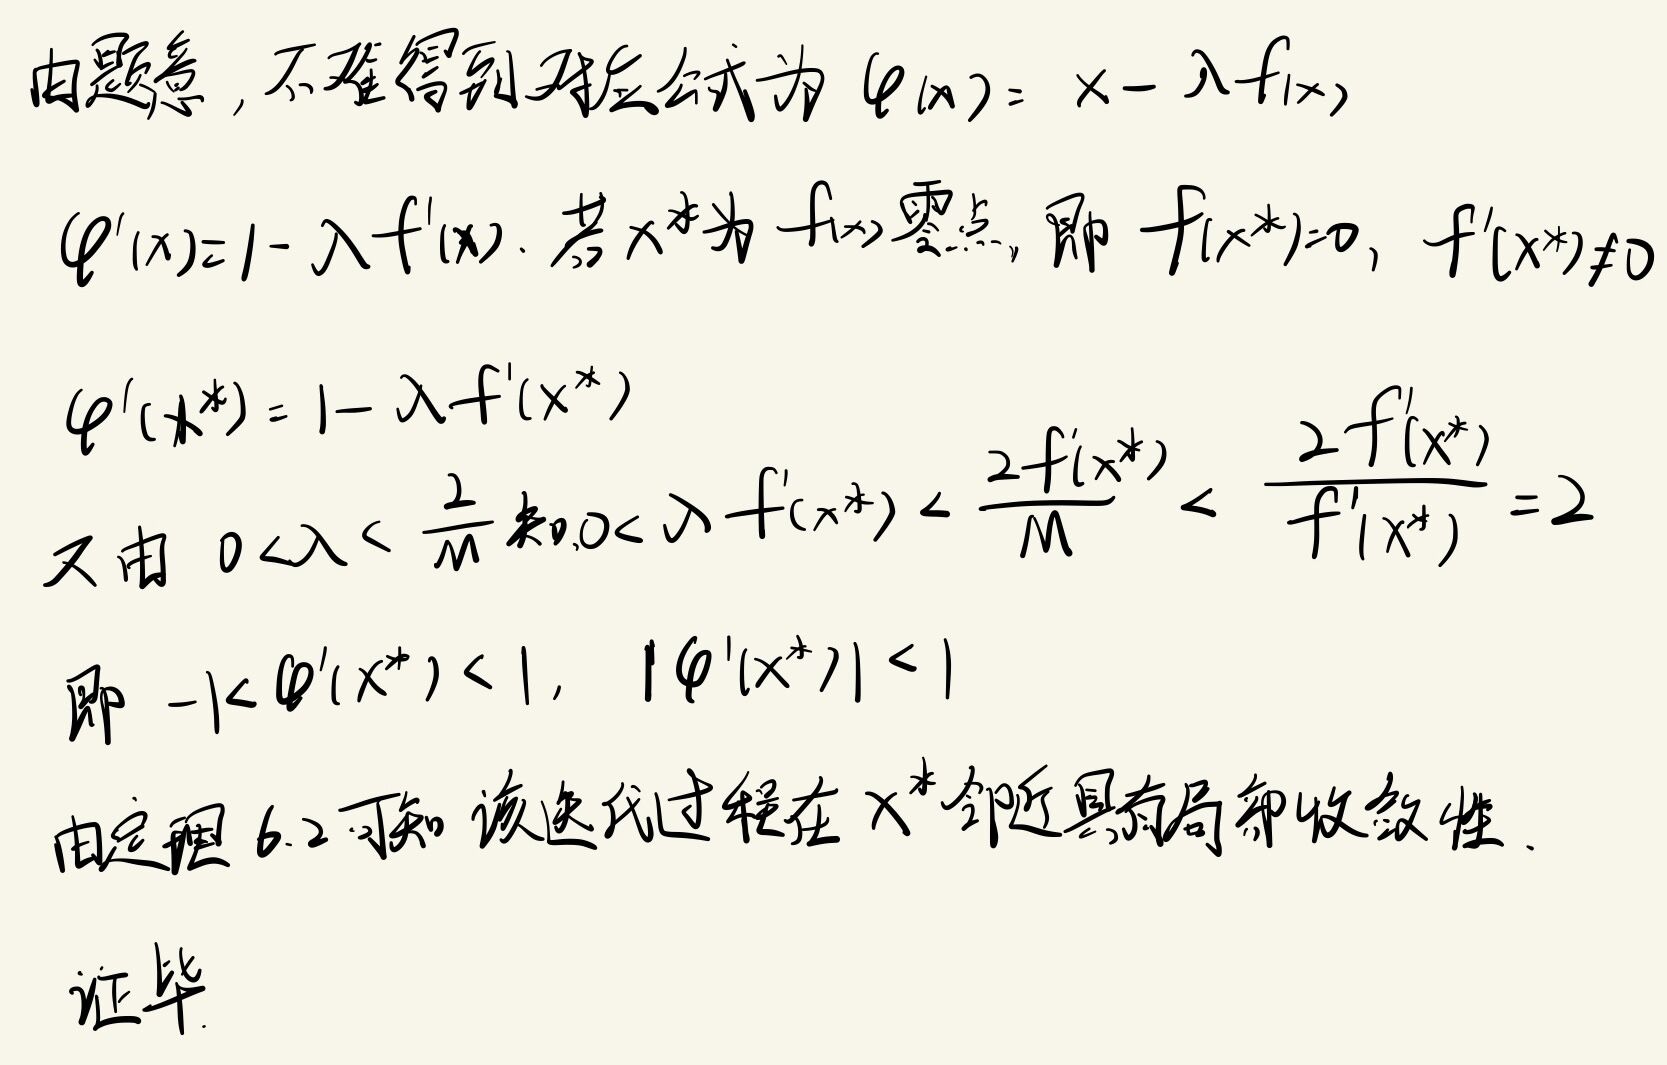 由题意,不难得到对应公式为 φ(x) = x - λf(x)
φ'(x) = 1 - λf'(x). 若 x* 为 f(x) 零点, 即 f(x*)=0, f'(x*)≠0
φ'(x*) = 1 - λf'(x*)
又由 0<λ<2/M 知,0<λf'(x*) < 2f'(x*)/M < 2f'(x*)/f'(x*) = 2
即 -1<φ'(x*)<1, |φ'(x*)|<1
由定理 6.2 可知 该迭代过程在 x* 邻近具有局部收敛性.
证毕.